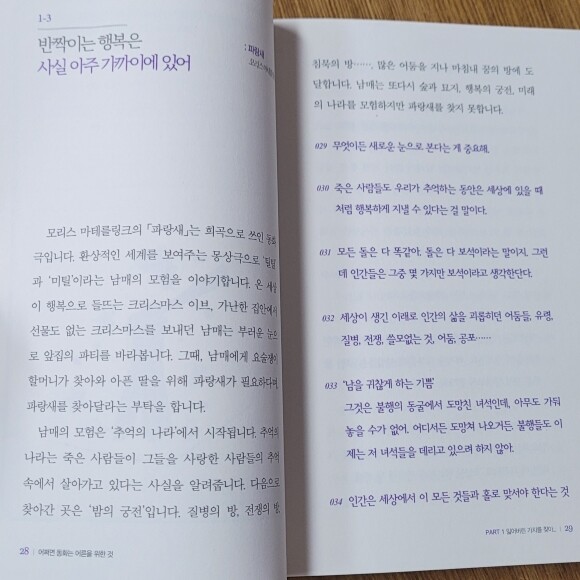 1-3
반짝이는 행복은
사실 아주 가까이에 있어
: 파랑새
모리스 마테를링크의 『파랑새』는 희곡으로 쓰인 동화
극입니다. 환상적인 세계를 보여주는 몽상극으로 '틸틸'
과 '미틸'이라는 남매의 모험을 이야기합니다. 온 세상
이 행복으로 들뜨는 크리스마스 이브, 가난한 집안에서
선물도 없는 크리스마스를 보내던 남매는 부러운 눈으
로 앞집의 파티를 바라봅니다. 그때, 남매에게 요술쟁이
할머니가 찾아와 아픈 딸을 위해 파랑새가 필요하다며,
파랑새를 찾아달라는 부탁을 합니다.
남매의 모험은 '추억의 나라'에서 시작됩니다. 추억의
나라는 죽은 사람들이 그들을 사랑한 사람들의 추억
속에서 살아가고 있다는 사실을 알려줍니다. 다음으로
찾아간 곳은 '밤의 궁전'입니다. 질병의 방, 전쟁의 방,
28 | 어쩌면 동화는 어른을 위한 것
침묵의 방……. 많은 어둠을 지나 마침내 꿈의 방에 도
달합니다. 남매는 또다시 숲과 묘지, 행복의 궁전, 미래
의 나라를 모험하지만 파랑새를 찾지 못합니다.
029 무엇이든 새로운 눈으로 본다는 게 중요해.
030 죽은 사람들도 우리가 추억하는 동안은 세상에 있을 때
처럼 행복하게 지낼 수 있다는 걸 말이다.
031 모든 돌은 다 똑같아. 돌은 다 보석이라는 말이지. 그런
데 인간들은 그중 몇 가지만 보석이라고 생각한단다.
032 세상이 생긴 이래로 인간의 삶을 괴롭히던 어둠들, 유령,
질병, 전쟁, 쓸모없는 것, 어둠, 공포……
033 '남을 귀찮게 하는 기쁨'
그것은 불행의 동굴에서 도망친 녀석인데, 아무도 가둬
놓을 수가 없어. 어디서든 도망쳐 나오거든. 불행들도 이
제는 저 녀석들을 데리고 있으려 하지 않아.
034 인간은 세상에서 이 모든 것들과 홀로 맞서야 한다는 것
PART 1 잃어버린 기치를 찾아… | 29